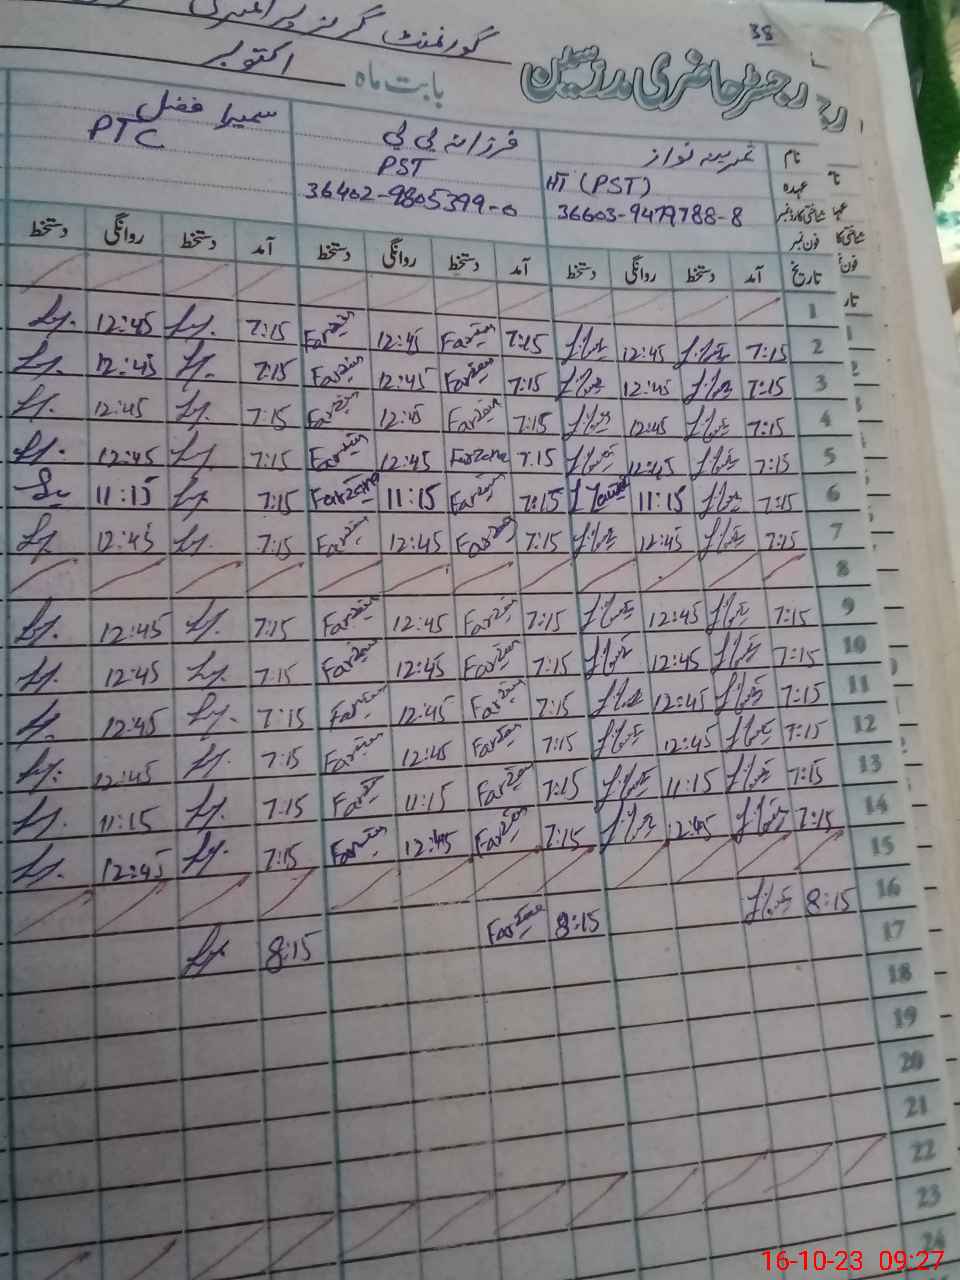 38
گورنمنٹ گرلز پرائمری
رجسٹر حاضری مدرسین
بابت ماہ اکتوبر
نام ثمرینہ نواز فرزانہ بی بی سمیرا فضل
عہدہ HT (PST) PST PTC
شناختی کارڈ نمبر 36603-9479788-8 36402-9805399-0
فون نمبر
تاریخ آمد دستخط روانگی دستخط آمد دستخط روانگی دستخط آمد دستخط روانگی دستخط
1
2 7:15 12:45 7:15 Farzana 12:45 Farzana 7:15 12:45
3 7:15 12:45 7:15 Farzana 12:45 Farzana 7:15 12:45
4 7:15 12:45 7:15 Farzana 12:45 Farzana 7:15 12:45
5 7:15 12:45 7:15 Farzana 12:45 Farzana 7:15 12:45
6 7:15 11:15 7:15 Farzana 11:15 Farzana 7:15 11:15
7 7:15 12:45 7:15 Farzana 12:45 Farzana 7:15 12:45
8
9 7:15 12:45 7:15 Farzana 12:45 Farzana 7:15 12:45
10 7:15 12:45 7:15 Farzana 12:45 Farzana 7:15 12:45
11 7:15 12:45 7:15 Farzana 12:45 Farzana 7:15 12:45
12 7:15 12:45 7:15 Farzana 12:45 Farzana 7:15 12:45
13 7:15 11:15 7:15 Farzana 11:15 Farzana 7:15 11:15
14 7:15 12:45 7:15 Farzana 12:45 Farzana 7:15 12:45
15
16 8:15 8:15 Farzana 8:15
17
18
19
20
21
22
23
24
16-10-23 09:27